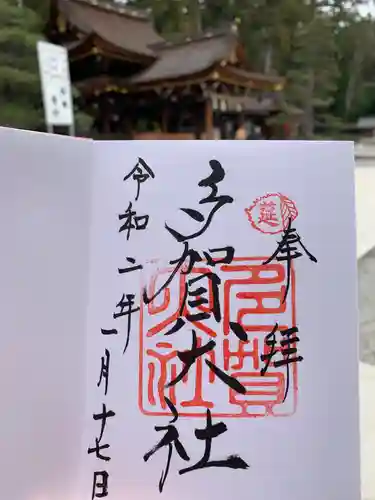 奉拝
莚
多賀大社
多賀大社
令和二年一月十七日